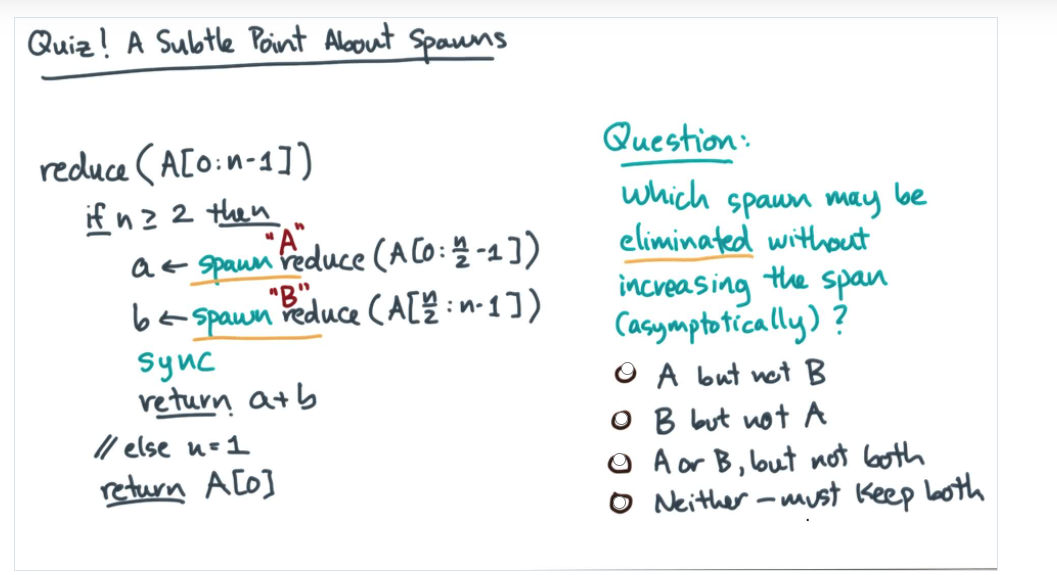 Quiz! A Subtle Point About Spawns
reduce (A[0:n-1])
if n ≥ 2 then
"A"
a ← spawn reduce (A[0: n/2 -1])
"B"
b ← spawn reduce (A[n/2 : n-1])
sync
return a+b
// else n=1
return A[0]
Question:
Which spawn may be
eliminated without
increasing the span
(asymptotically)?
A but not B
B but not A
A or B, but not both
Neither - must keep both